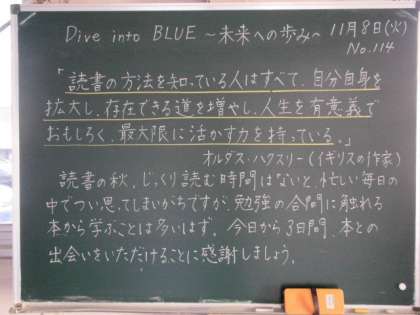 Dive into BLUE ～未来への歩み～ 11月8日(火)
No.114
「読書の方法を知っている人はすべて、自分自身を
拡大し、存在できる道を増やし、人生を有意義で
おもしろく、最大限に活かす力を持っている。」
オルダス・ハクスリー(イギリスの作家)
読書の秋。じっくり読む時間はないと、忙しい毎日の
中でつい思ってしまいがちですが、勉強の合間に触れる
本から学ぶことは多いはず。今日から3日間、本との
出会いをいただけることに感謝しましょう。